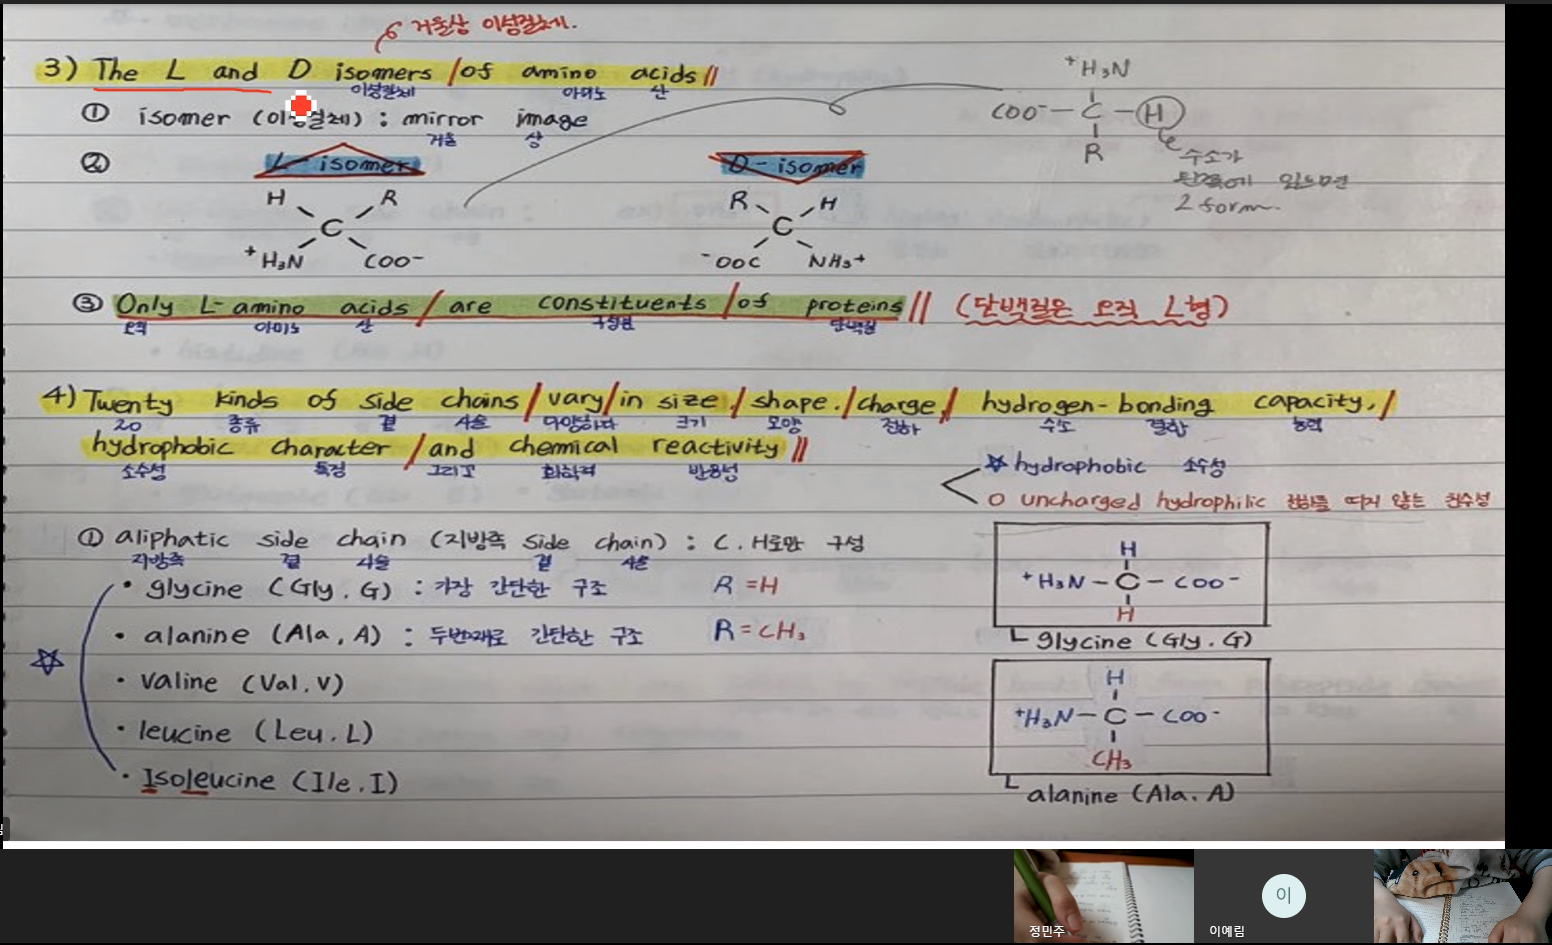 거울상 이성질체.
3) The L and D isomers / of amino acids //
이성질체 아미노 산
① isomer (이성질체) : mirror image
거울 상
② L-isomer D-isomer
H R
C
⁺H₃N COO⁻
R H
C
⁻OOC NH₃⁺
⁺H₃N
COO⁻ — C — H
R
수소가
왼쪽에 있으면
2 form.
③ Only L-amino acids / are constituents / of proteins // (단백질은 오직 L형)
오직 아미노 산 구성원 단백질
4) Twenty kinds of side chains / vary / in size, / shape, / charge, / hydrogen-bonding capacity, /
20 종류 곁 사슬 다양하다 크기 모양 전하 수소 결합 능력
hydrophobic character / and chemical reactivity //
소수성 특징 그리고 화학적 반응성
☆ hydrophobic 소수성
○ uncharged hydrophilic 전하를 띠지 않는 친수성
① aliphatic side chain (지방족 side chain) : C, H로만 구성
지방족 곁 사슬 곁 사슬
• glycine (Gly, G) : 가장 간단한 구조 R = H
• alanine (Ala, A) : 두번째로 간단한 구조 R = CH₃
• valine (Val, V)
• leucine (Leu, L)
• Isoleucine (Ile, I)
H
⁺H₃N — C — COO⁻
H
glycine (Gly, G)
H
⁺H₃N — C — COO⁻
CH₃
alanine (Ala, A)
정민주
이
이예림